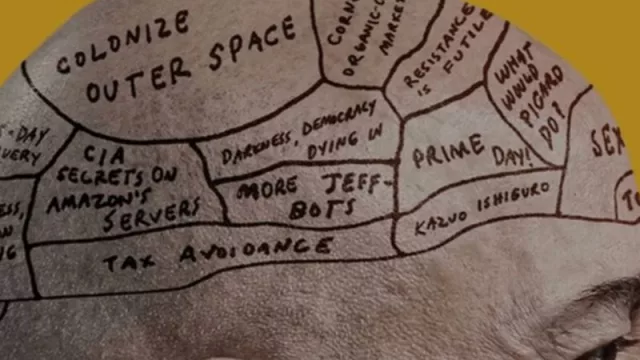 COLONIZE
OUTER SPACE
CORN
ORGANIC-
MARKE
RESISTANCE
IS FUTILE
WHAT
WOULD
PICARD
DO?
-DAY
VERY
CIA
SECRETS ON
AMAZON'S
SERVERS
DARKNESS, DEMOCRACY
DYING IN
MORE JEFF-
BOTS
PRIME DAY!
KAZUO ISHIGURO
SEX
TAX AVOIDANCE